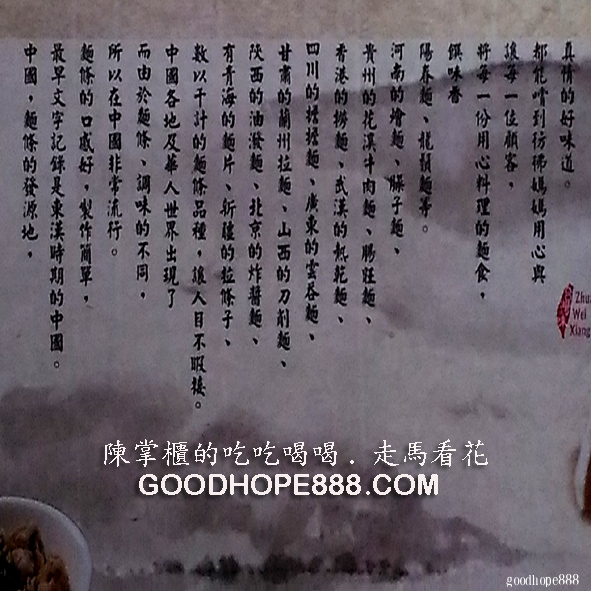 中國，麵條的發源地，
最早文字記錄是東漢時期的中國。
麵條的口感好，製作簡單，
所以在中國非常流行。
而由於麵條、調味的不同，
中國各地及華人世界出現了
數以千計的麵條品種，讓人目不暇接。
有青海的麵片、新疆的拉條子、
陝西的油潑麵、北京的炸醬麵、
甘肅的蘭州拉麵、山西的刀削麵、
四川的擔擔麵、廣東的雲吞麵、
香港的撈麵、武漢的熱乾麵、
貴州的花溪牛肉麵、腸旺麵、
河南的燴麵、臊子麵、
陽春麵、龍鬚麵等。
饌味香
將每一份用心料理的麵食，
讓每一位顧客，
都能嚐到彷彿媽媽用心與
真情的好味道。
Wei
Xiang
陳掌櫃的吃吃喝喝．走馬看花
GOODHOPE888.COM
goodhope888